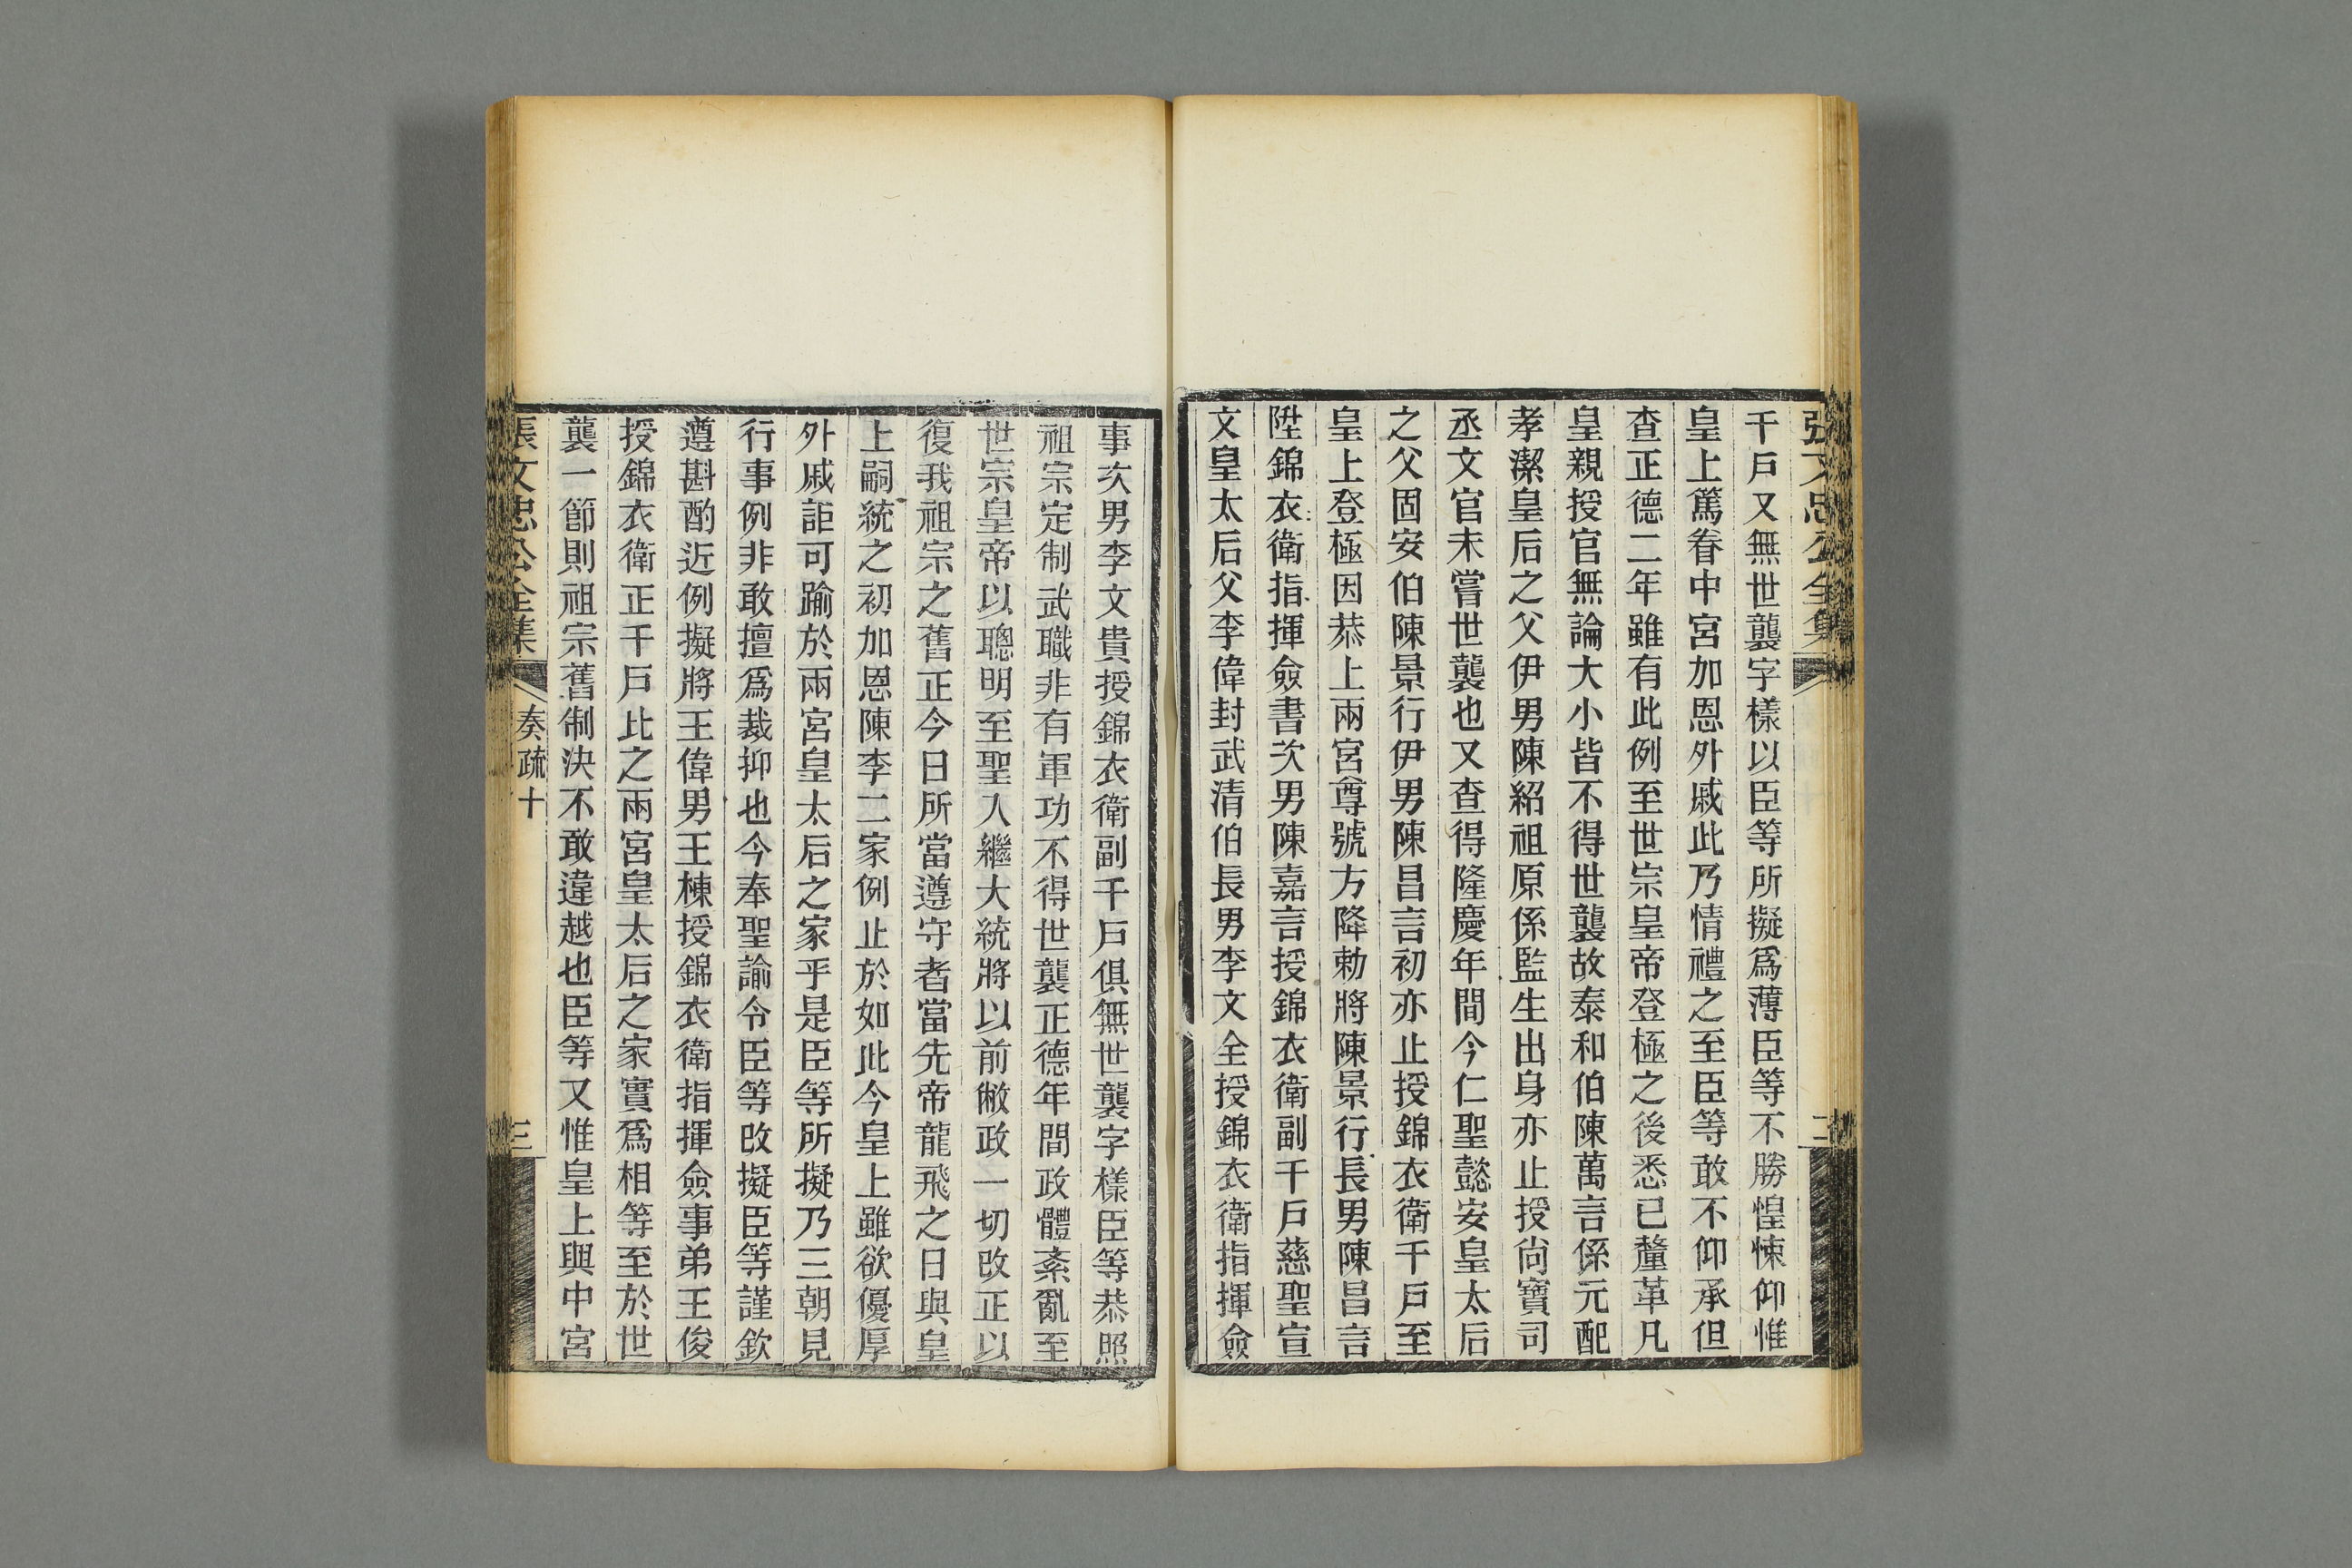 張文忠公全集
二
千戶又無世襲字樣以臣等所擬爲薄臣等不勝惶悚仰惟
皇上篤眷中宮加恩外戚此乃情禮之至臣等敢不仰承但
查正德二年雖有此例至世宗皇帝登極之後悉已釐革凡
皇親授官無論大小皆不得世襲故泰和伯陳萬言係元配
孝潔皇后之父伊男陳紹祖原係監生出身亦止授尚寶司
丞文官未嘗世襲也又查得隆慶年間今仁聖懿安皇太后
之父固安伯陳景行伊男陳昌言初亦止授錦衣衛千戶至
皇上登極因恭上兩宮尊號方降勅將陳景行長男陳昌言
陞錦衣衛指揮僉書次男陳嘉言授錦衣衛副千戶慈聖宣
文皇太后父李偉封武清伯長男李文全授錦衣衛指揮僉
事次男李文貴授錦衣衛副千戶俱無世襲字樣臣等恭照
祖宗定制武職非有軍功不得世襲正德年間政體紊亂至
世宗皇帝以聰明至聖入繼大統將以前敝政一切改正以
復我祖宗之舊正今日所當遵守者當先帝龍飛之日與皇
上嗣統之初加恩陳李二家例止於如此今皇上雖欲優厚
外戚詎可踰於兩宮皇太后之家乎是臣等所擬乃三朝見
行事例非敢擅爲裁抑也今奉聖諭令臣等改擬臣等謹欽
遵斟酌近例擬將王偉男王棟授錦衣衛指揮僉事弟王俊
授錦衣衛正千戶比之兩宮皇太后之家實爲相等至於世
襲一節則祖宗舊制決不敢違越也臣等又惟皇上與中宮
張文忠公全集
奏疏十
三